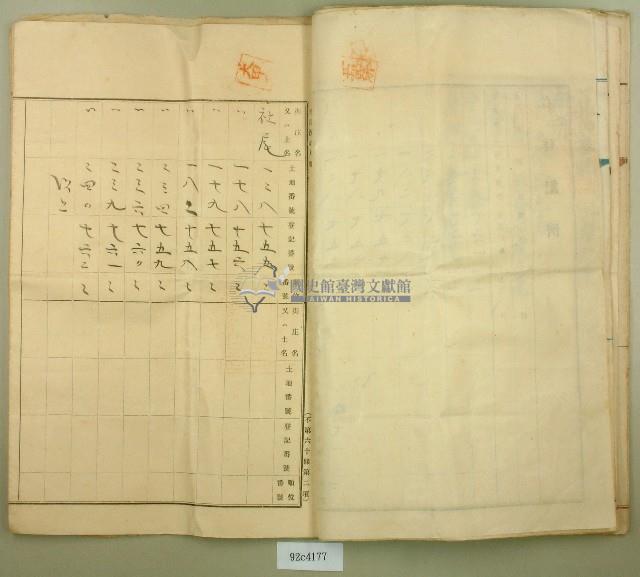 街庄名又ハ土名
土地番號
登記番號
順位番號
街庄名又ハ土名
土地番號
登記番號
順位番號
(不第六十條第二項)
社尾
一三八
七五五
一七八
七五六
一七九
七五七
一八二
七五八
二三四
七五九
二三六
七六〇
二三九
七六一
二四〇
七六二
以上
國史館臺灣文獻館
TAIWAN HISTORICA
92c4177